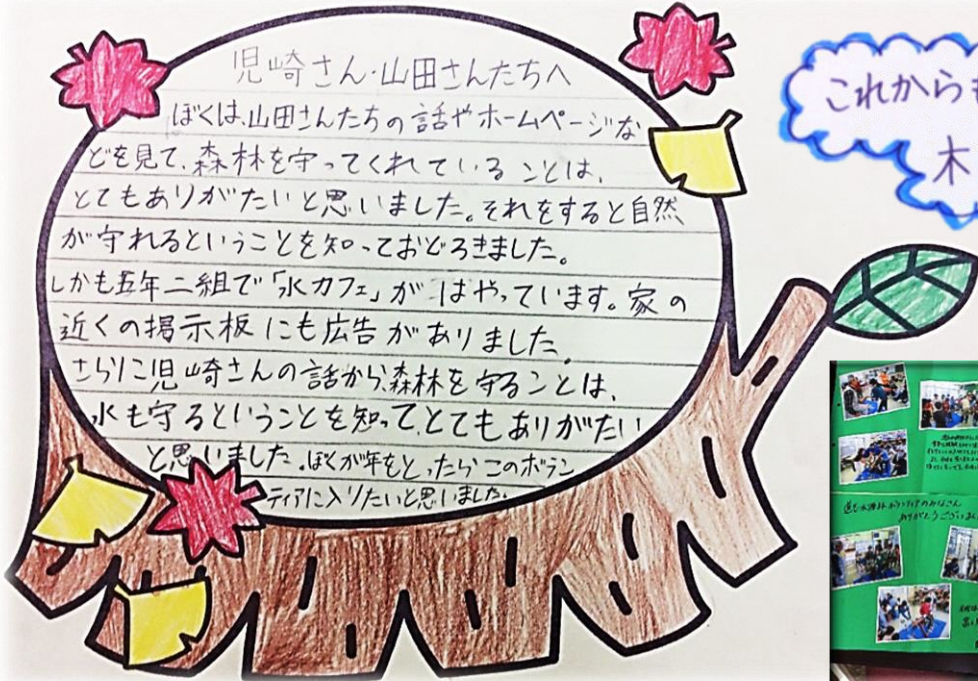 児崎さん・山田さんたちへ
ぼくは、山田さんたちの話やホームページな
どを見て、森林を守ってくれていることは、
とてもありがたいと思いました。それをすると自然
が守れるということを知っておどろきました。
しかも五年二組で「水カフェ」がはやっています。家の
近くの掲示板にも広告がありました。
さらに児崎さんの話から、森林を守ることは、
水も守るということを知って、とてもありがたい
と思いました。ぼくが年をとったらこのボラン
ティアに入りたいと思いました。
これからも
木
ボランティアのみなさん
ありがとうござい